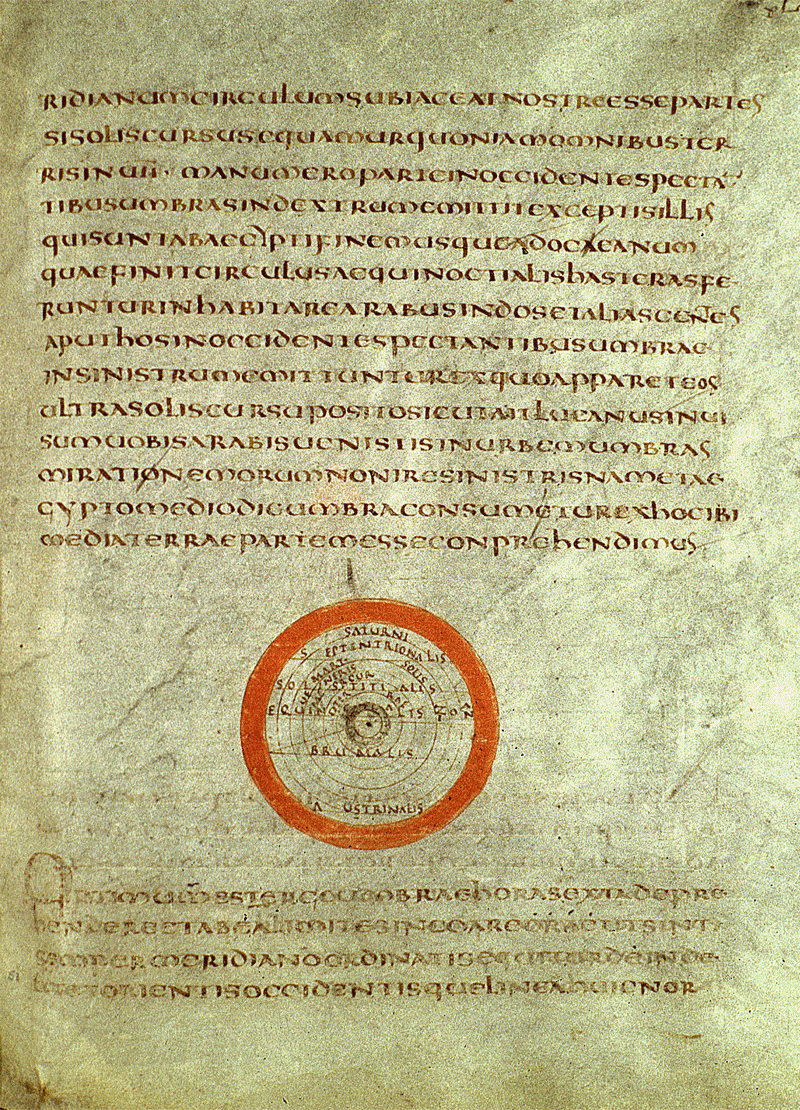 RIDIANUMCIRCULUMSUBIACEATNOSTREESSEPARTES
SISOLISCURSUSEQUAMURQUONIAMOMNIBUSTER
MANUMEROPARTEINOCCIDENTESPECTA
TIBUSUMBRASINDEXTRUMEMITTITEXCEPTISILLIS
QUISUNTABAEGYPTIFINEMUSQUEADOCAEANUM
QUAEFINITCIRCULUSAEQUINOCTIALISHASTERASFE
RUNTURINHABITAREARABUSINDOSETALIASGENTES
APUTHOSINOCCIDENTESPECTANTIBUSUMBRAE
INSINISTRUMEMITTUNTUREXQUOAPPARETEOS
ULTRASOLISCURSUPOSITOSICUTAITLUCANUS
SUMUOBISARABISUENISTISINURBEMUMBRAS
MIRATIONEMORUMNONIRESINISTRISNAMETAE
GYPTOMEDIODIEUMBRACONSUMETUREXHOCIBI
MEDIATERRAEPARTEMESSECONPREHENDIMUS
SATURNI
SEPTENTRIONALIS
SOLIS
BRUMALIS
AUSTRINALIS
UMBRAEHORASEXTADEPRE
SEMPERMERIDIANOORDINATIS
ORIENTISOCCIDENTISQUELINEAHUICNOR